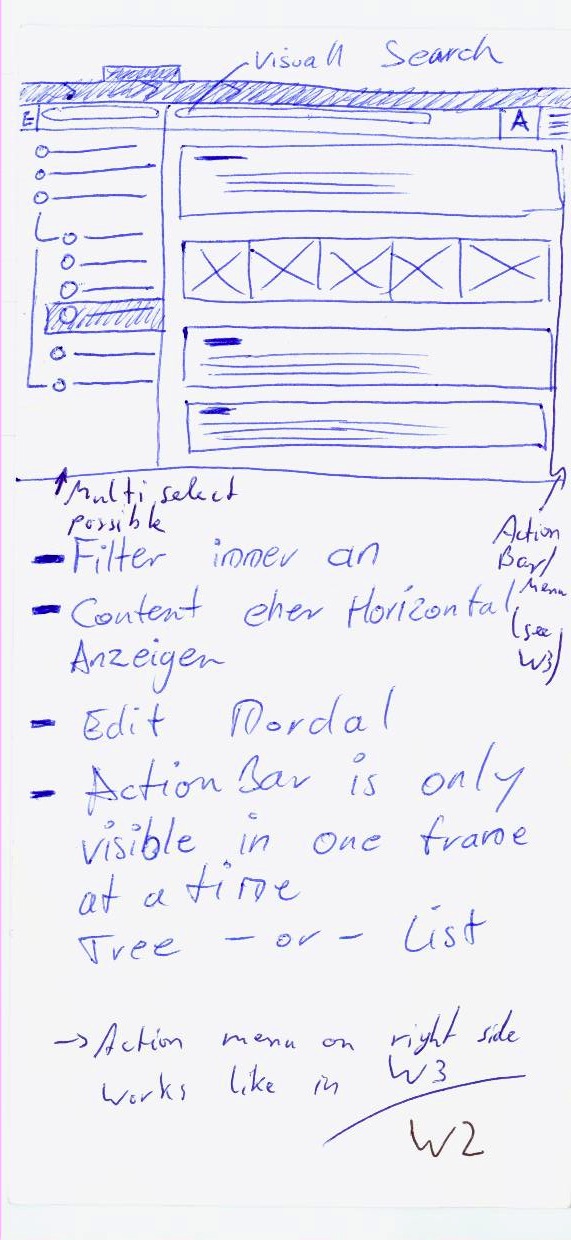 Visuall Search
E
A
Multi select
possible
Action
Bar/
Menu
(see
W3)
- Filter immer an
- Content eher Horizontal
Anzeigen
- Edit Mordal
- Action Bar is only
visible in one frame
at a time
Tree - or - List
-> Action menu on right side
works like in W3
W2